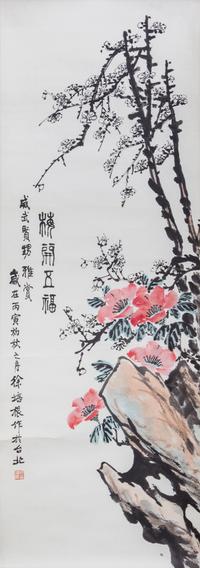 梅開五福
威出賢甥雅賞
歲在丙寅初秋之月徐培根作於台北